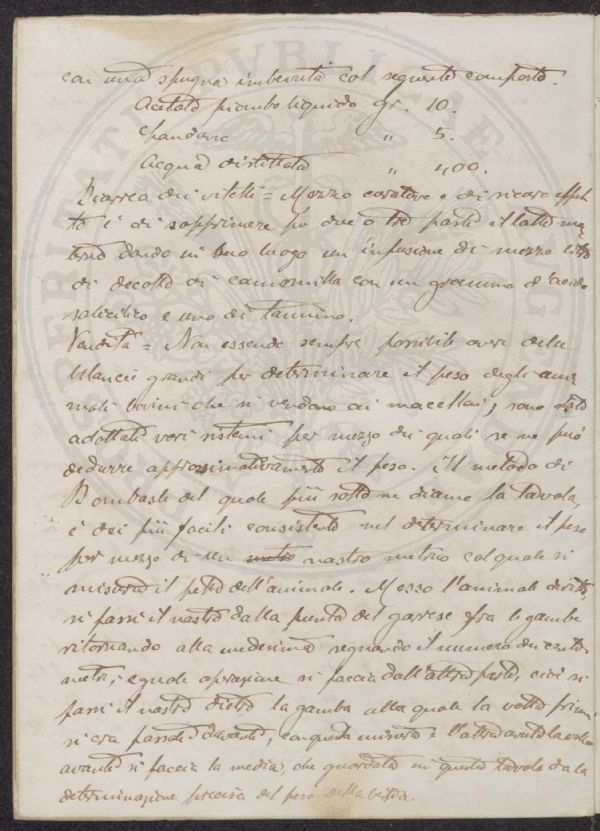 con una spugna imbevuta col seguente composto.
Acetato piombo liquido gr. 10.
" 5.
Acqua distillata " 400.
Diarrea dei vitelli = Mezzo curativo e di sicuro effet-
to è di sopprimere per due o tre pasti il latte ma-
terno dando in suo luogo un infusione di mezzo litro
di decotto di camomilla con un grammo d'acido
salicilico e uno di tannino.
Vendita = Non essendo sempre possibile avere delle
bilancie grandi per determinare il peso degli ani-
mali bovini che si vendono ai macellai, sono stati
adottati vari sistemi per mezzo dei quali se ne può
dedurre approssimativamente il peso. Il metodo di
Dombasle del quale più sotto ne diamo la tavola,
è dei più facili consistendo nel determinare il peso
per mezzo di un metro nastro metrico col quale si
misura il petto dell'animale. Messo l'animale diritto
si passi il nastro dalla punta del garrese fra le gambe
ritornando alla medesima segnando il numero dei centi-
metri, eguale operazione si faccia dall'altra parte, cioè si
passi il nastro dietro la gamba alla quale la volta prima
si era passato davanti, con questa misura e l'altra avuta la volta
avanti si faccia la media, che guardata in questa tavola da la
determinazione precisa del peso della bestia.
REIPUBLICAE